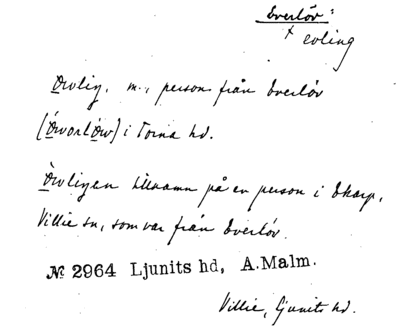 Everlöv:
× evling
Övlig, m., person från Everlöv
(Övorlöv) i Torna hd.
Övligen tillnamn på en person i Skarp.
Villie sn, som var från Everlöv.
№ 2964 Ljunits hd, A.Malm.
Villie, Ljunits hd.